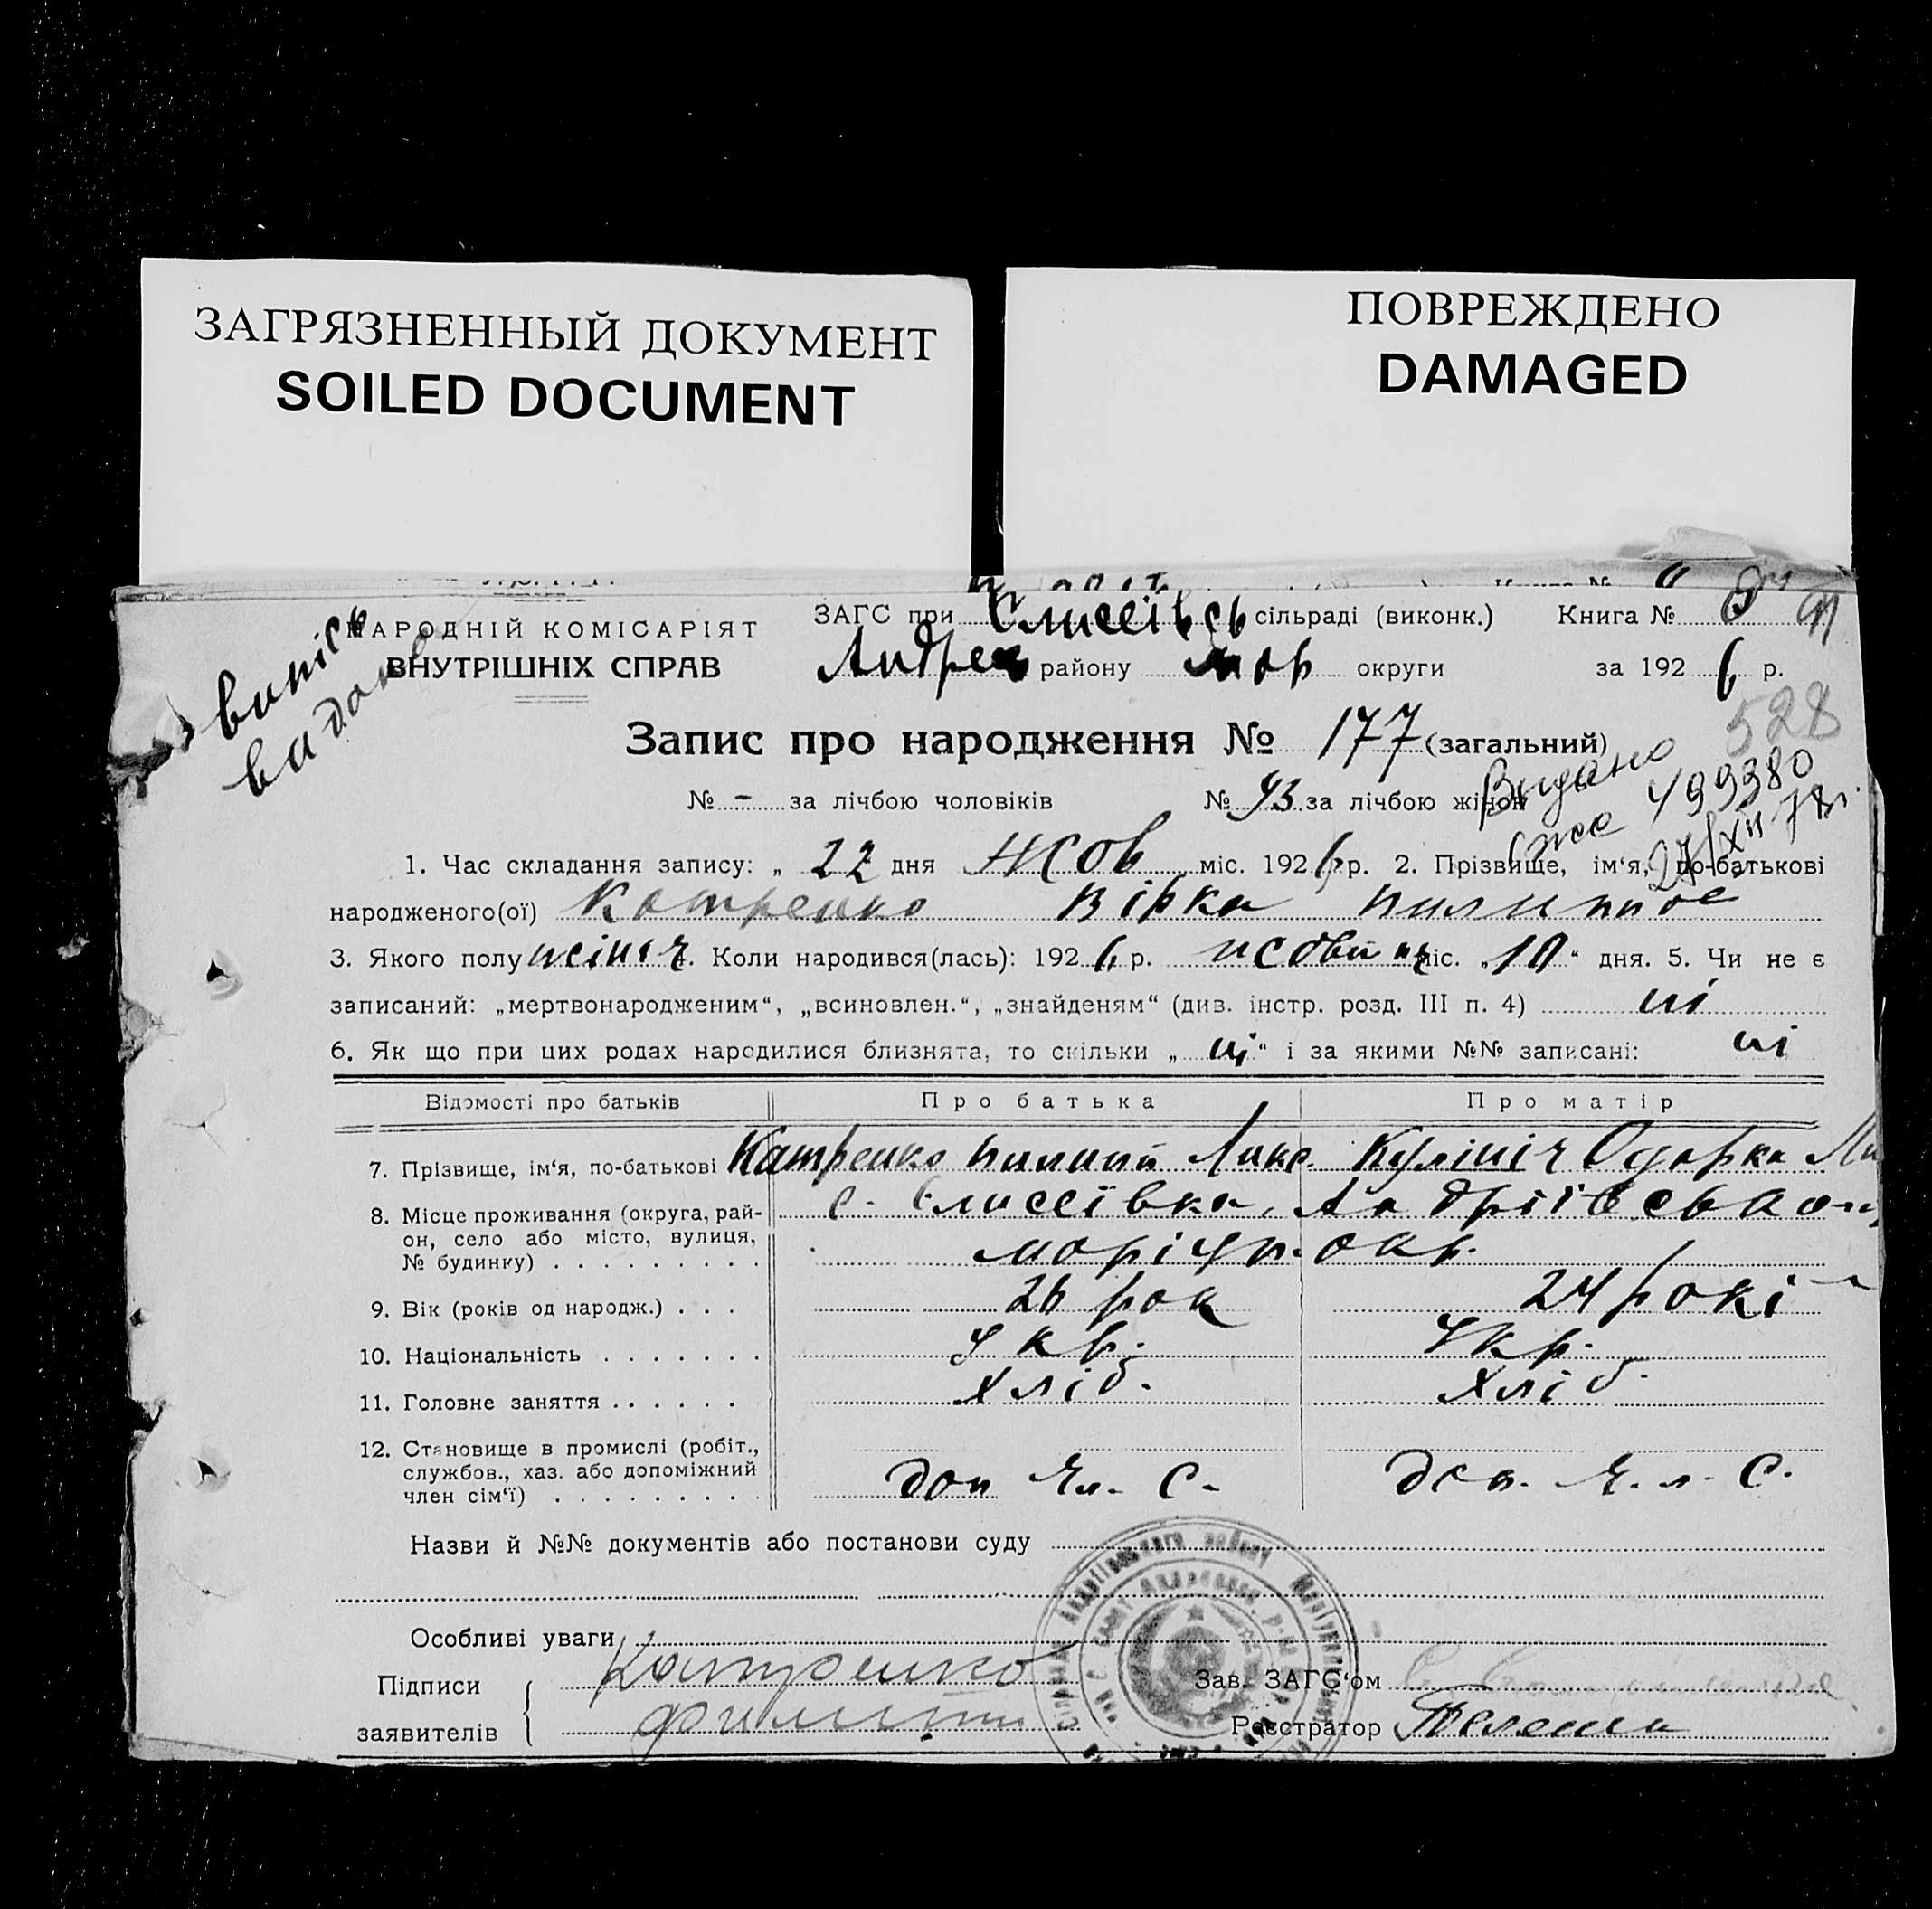 ЗАГРЯЗНЕННЫЙ ДОКУМЕНТ
SOILED DOCUMENT
ПОВРЕЖДЕНО
DAMAGED
випись
видано
НАРОДНІЙ КОМІСАРІЯТ
ВНУТРІШНІХ СПРАВ
ЗАГС при Єлисеївсь сільраді (виконк.) Книга №
Андреев району Мар округи за 192 6 р.
528
Запис про народження № 177 (загальний)
№ - за лічбою чоловіків № 93 за лічбою жінок
Видано
499380
27/XII 78г.
1. Час складання запису: „ 22 дня жов міс. 192 6 р. 2. Прізвище, ім‘я, по-батькові
народженого(ої) Катренко Вірка Пилипов
3. Якого полу жіноч. Коли народився(лась): 192 6 р. жовтня міс. „10“ дня. 5. Чи не є
записаний: „мертвонародженим“, „всиновлен.“, „знайденям“ (див. інстр. розд. III п. 4) ні
6. Як що при цих родах народилися близнята, то скільки „ ні “ і за якими №№ записані: ні
Відомості про батьків Про батька Про матір
7. Прізвище, ім‘я, по-батькові Катренко Пилип Кулініч Одарка
8. Місце проживання (округа, рай- с. Єлисеївка, Андріївськ
он, село або місто, вулиця,
№ будинку) . . . . . . . . . Маріуп. окр.
9. Вік (років од народж.) . . . 26 рок 24 рокі
10. Національність . . . . . . . Укр. Укр.
11. Головне заняття . . . . . . Хліб. Хліб.
12. Становище в промислі (робіт.,
службов., хаз. або допоміжний доп чл. с. доп. ч. л. с.
член сім‘ї) . . . . . . . . .
Назви й №№ документів або постанови суду
Особливі уваги
Підписи Катренко Зав. ЗАГС‘ом
заявителів Филипп Реєстратор